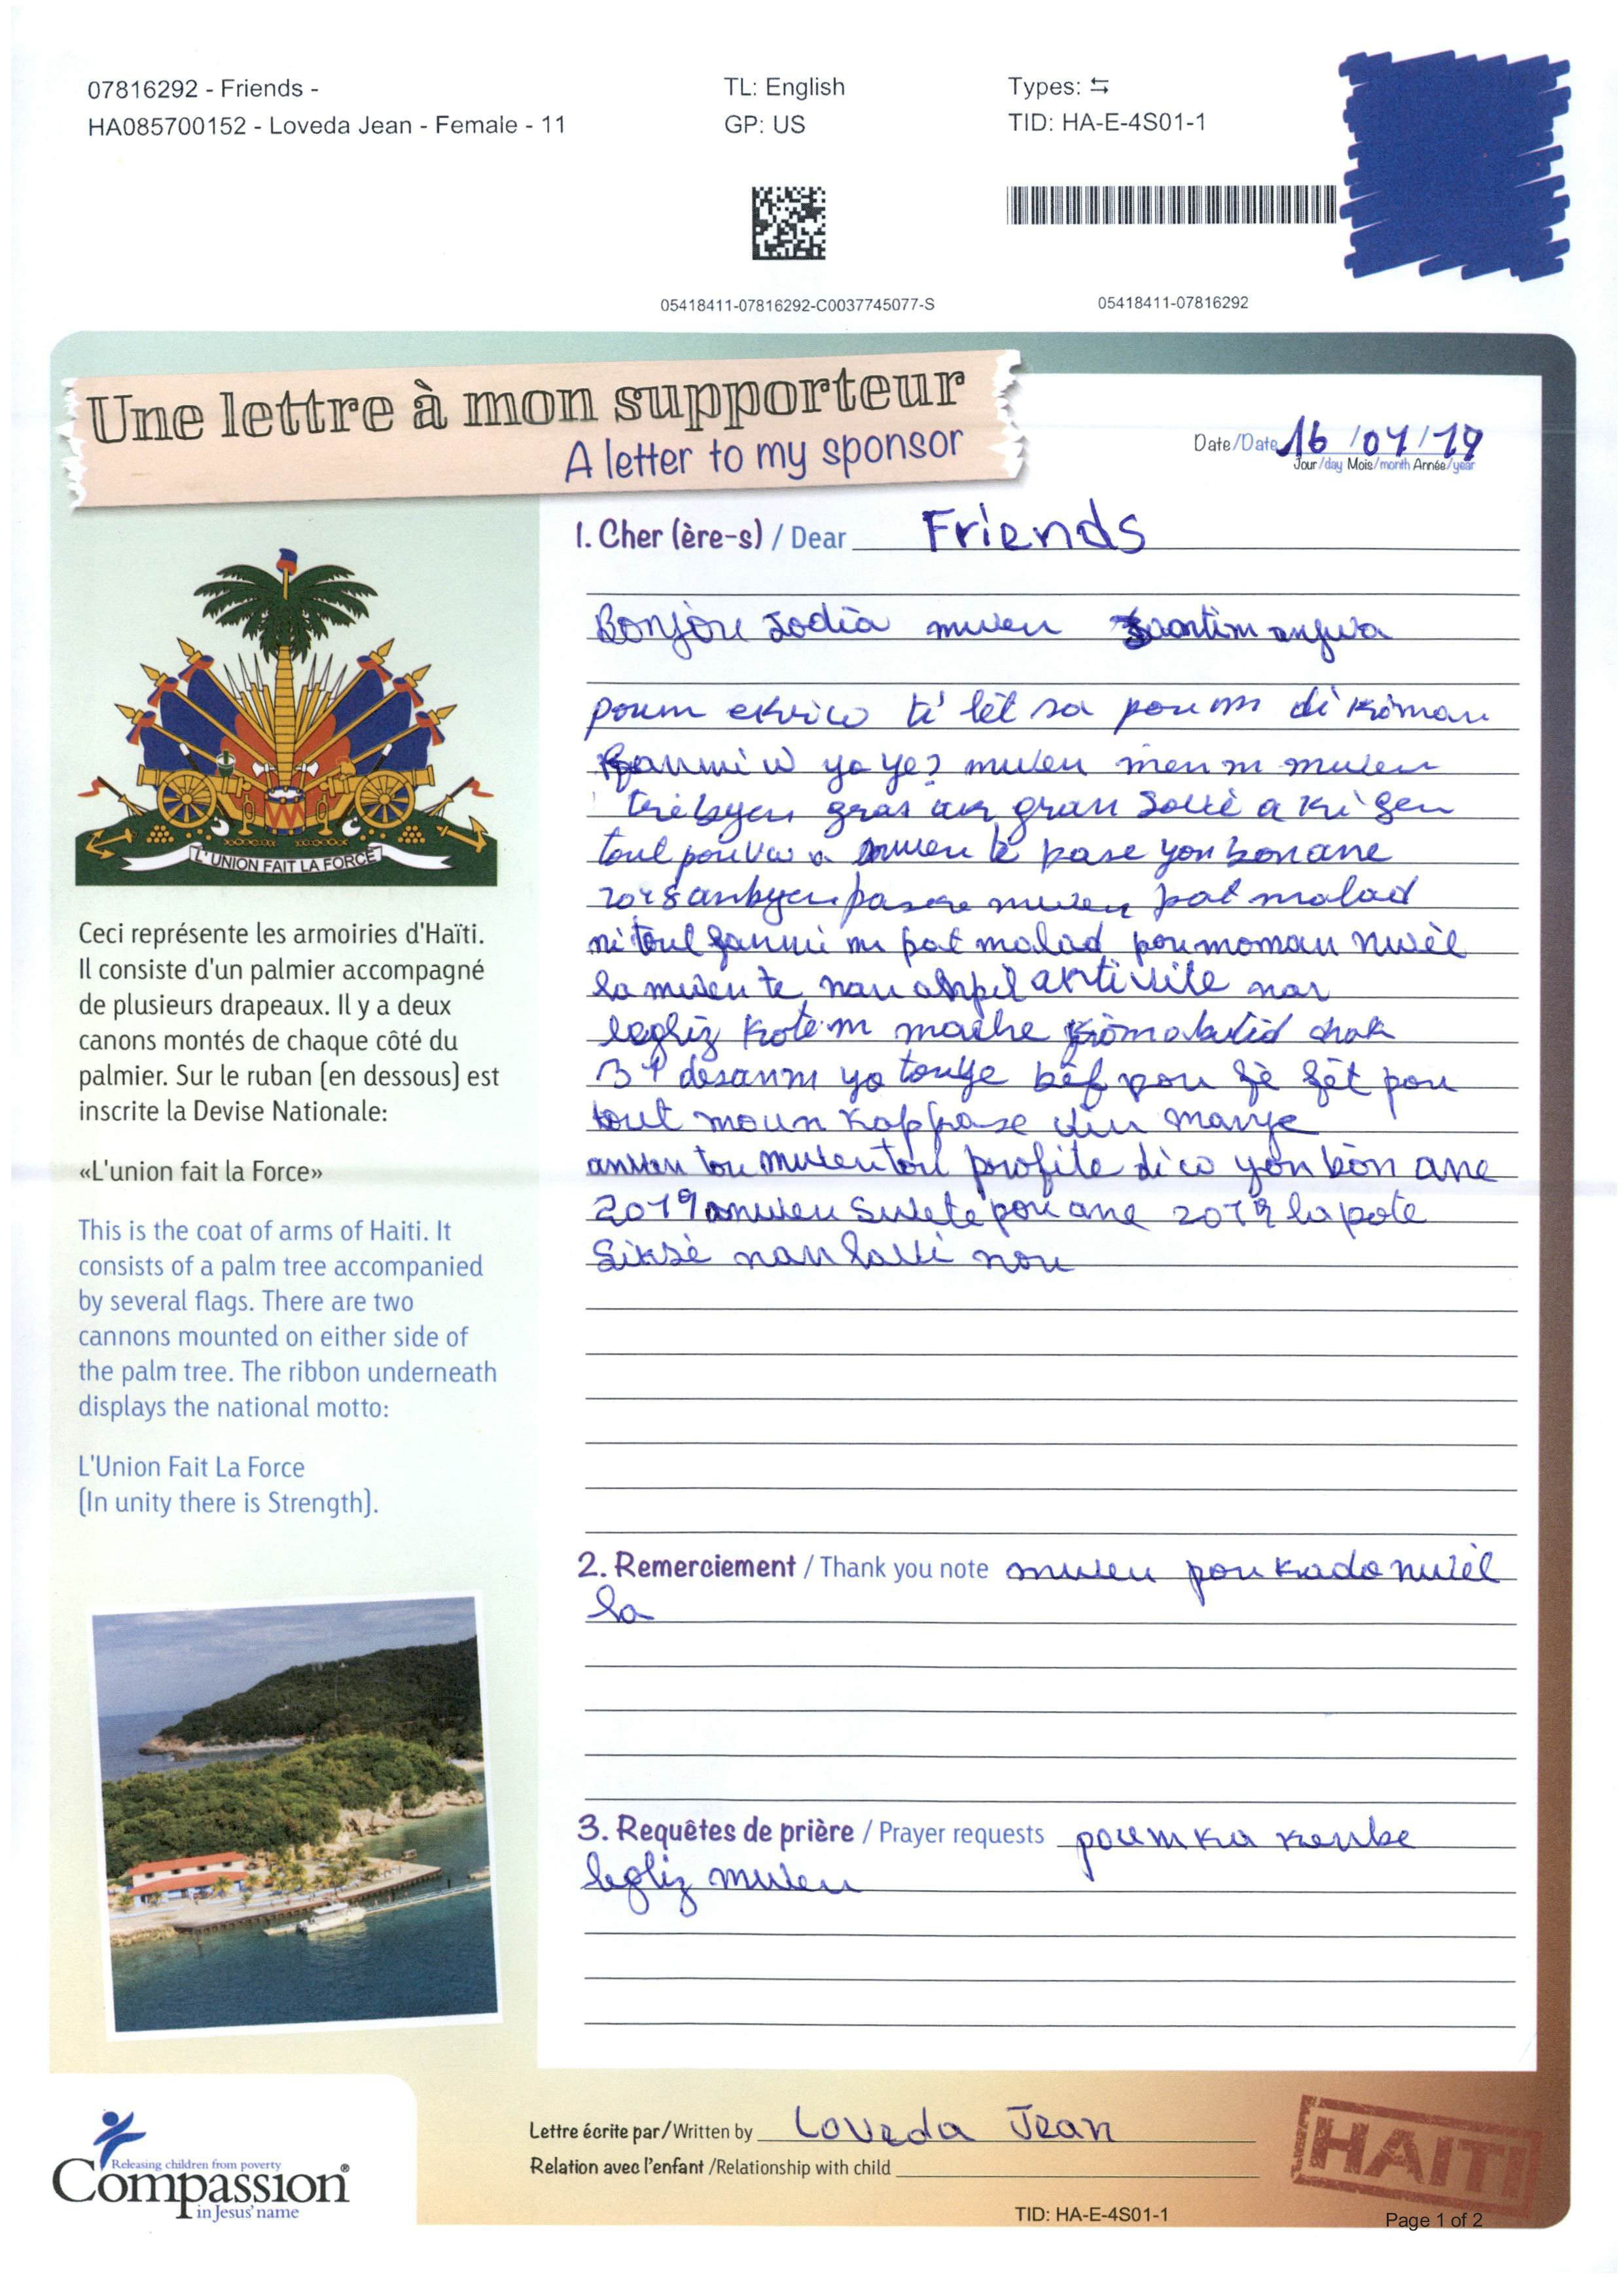 07816292 - Friends -
HA085700152 - Loveda Jean - Female - 11
TL: English
GP: US
Types: ⇆
TID: HA-E-4S01-1
05418411-07816292-C0037745077-S
05418411-07816292
Une lettre à mon supporteur
A letter to my sponsor
Date/Date 16 /01/19
Jour/day Mois/month Année/year
1. Cher (ère-s) / Dear Friends
Bonjou Jodia mwen
poum ekri w ti lèt sa pou m di kòman
fanmi w yo ye? mwen menm mwen
trèbyen gras ak gran
tout pouvwa a mwen te pase yon bon ane
2018 mwen pat malad
ni tout fanmi m pat malad pou moman nwèl
la mwen te nan anpil aktivite nan
legliz kote m mache chak
desanm yo touye bèf pou fè fèt pou
tout moun kap pase vin manje
profite di w yon bòn ane
2019 swete pou ane 2019 la pote
siksè nan lavi nou
2. Remerciement / Thank you note mwen pou kado nwèl
la
3. Requêtes de prière / Prayer requests poum ka kenbe
legliz mwen
L'UNION FAIT LA FORCE
Ceci représente les armoiries d'Haïti.
Il consiste d'un palmier accompagné
de plusieurs drapeaux. Il y a deux
canons montés de chaque côté du
palmier. Sur le ruban (en dessous) est
inscrite la Devise Nationale:
«L'union fait la Force»
This is the coat of arms of Haiti. It
consists of a palm tree accompanied
by several flags. There are two
cannons mounted on either side of
the palm tree. The ribbon underneath
displays the national motto:
L'Union Fait La Force
(In unity there is Strength).
Releasing children from poverty
Compassion®
in Jesus' name
Lettre écrite par/Written by Loveda Jean
Relation avec l'enfant /Relationship with child
HAITI
TID: HA-E-4S01-1
Page 1 of 2